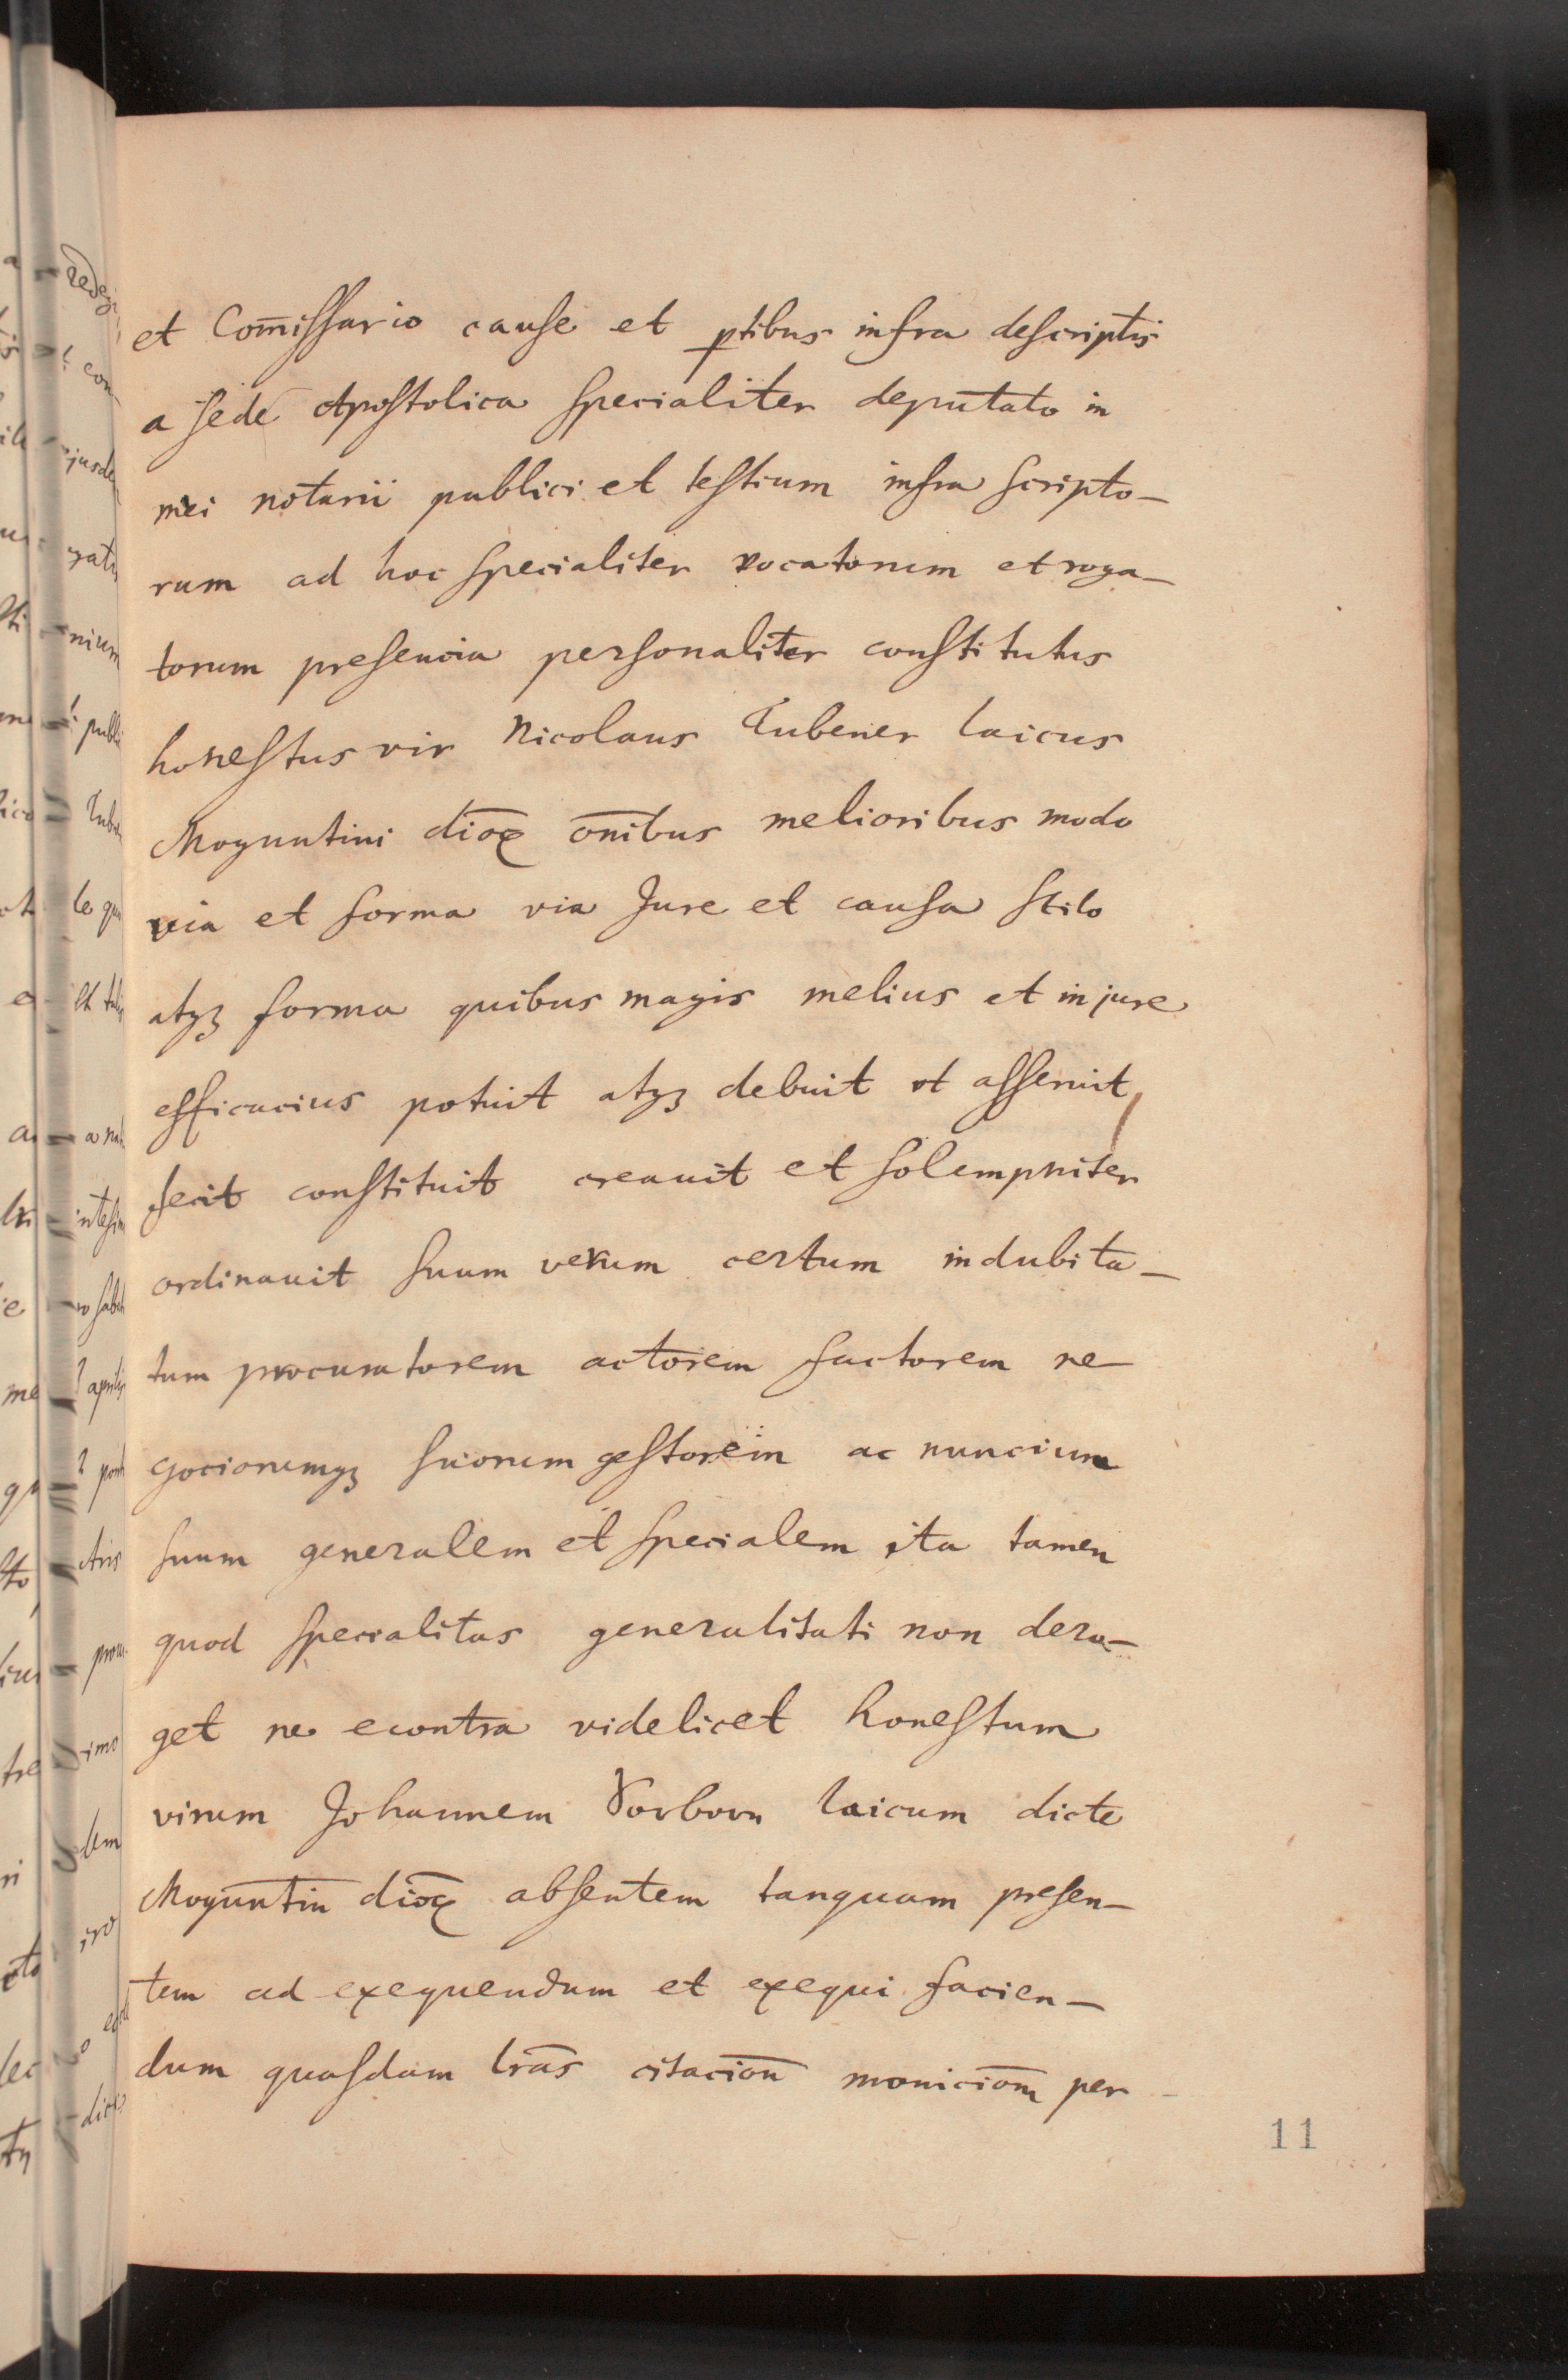 et Com̅iſſario cauſe et ꝑtibus infra deſcriptis
a ſede Apoſtolica ſpecialiter deputato in
mei notarii publici et teſtium infra ſcripto-
rum ad hoc ſpecialiter vocatorum et roga-
torum preſencia perſonaliter conſtitutus
honeſtus vir Nicolaus Tubener laicus
Moguntini dioc̅ om̅ibus melioribus modo
via et forma via Jure et cauſa ſtilo
atqꝫ forma quibus magis melius et in jure
efficacius potuit atqꝫ debuit vt aſſeruit,
fecit conſtituit creauit et ſolempniter
ordinauit ſuum verum certum indubita-
tum procuratorem actorem factorem ne-
gociorumqꝫ ſuorum geſtorem ac nuncium
ſuum generalem et ſpecialem ita tamen
quod ſpecialitas generalitati non dero-
get ne econtra videlicet honeſtum
virum Johannem Vorborn laicum dicte
Mogunti̅n dioc̅ abſentem tanquam preſen-
tem ad exequendum et exequi facien-
dum quaſdam lr̅as citacion̅ monicion̅ per-
11